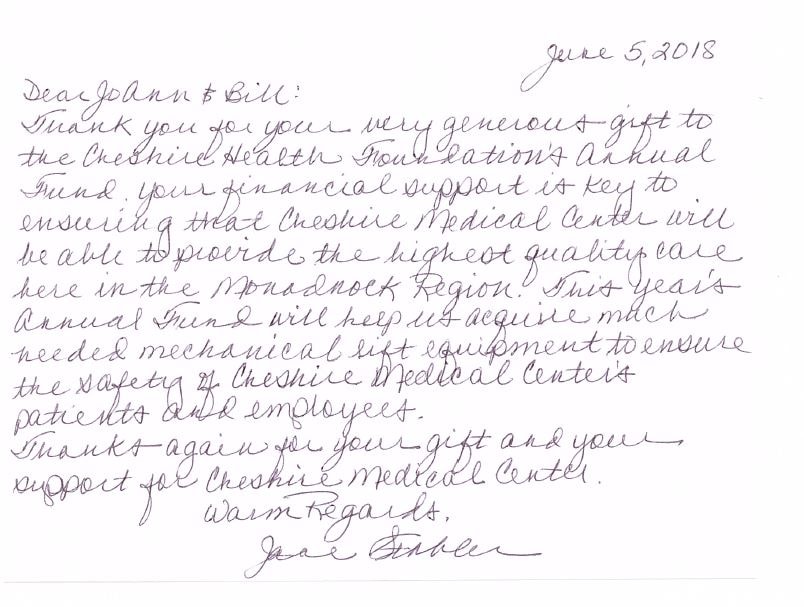 June 5, 2018
Dear JoAnn & Bill:
Thank you for your very generous gift to
the Cheshire Health Foundation's Annual
Fund. your financial support is key to
ensuring that Cheshire Medical Center will
be able to provide the highest quality care
here in the Monadnock Region. This year's
Annual Fund will help us acquire much
needed mechanical lift equipment to ensure
the safety of Cheshire Medical Center's
patients and employees.
Thanks again for your gift and your
support for Cheshire Medical Center.
Warm Regards,
Jane